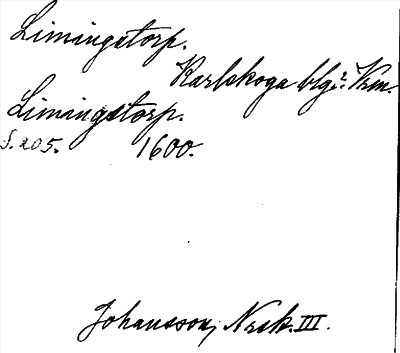 Limingstorp.
Karlskoga blgs. Vrm.
Limingstorp.
S. 205. 1600.
Johansson, Norsk. III.